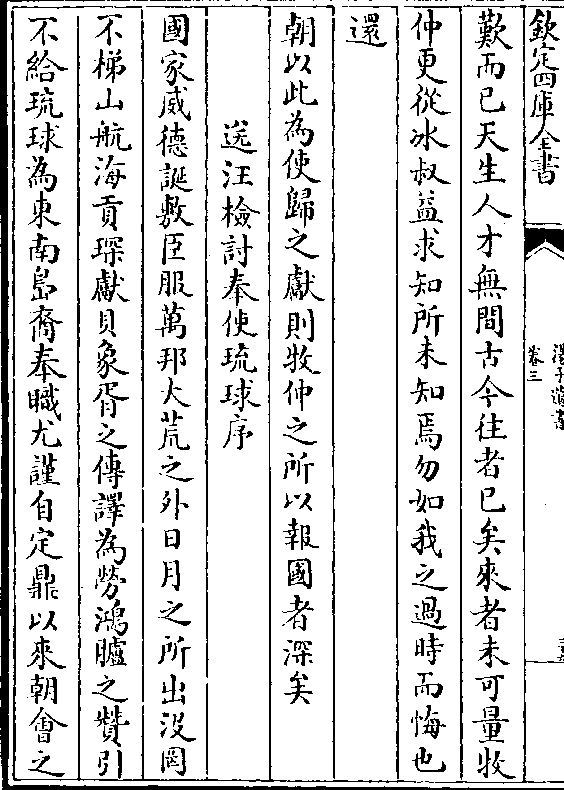 欽定四庫全書
卷三
歎而已天生人才無間古今往者已矣來者未可量牧
仲更從冰叔益求知所未知焉勿如我之過時而悔也
還
朝以此為使歸之獻則牧仲之所以報國者深矣
送汪檢討奉使琉球序
國家威德誕敷臣服萬邦大荒之外日月之所出沒罔
不梯山航海貢琛獻貝象胥之傳譯為勞鴻臚之贊引
不給琉球為東南島裔奉職尤謹自定鼎以來朝會之